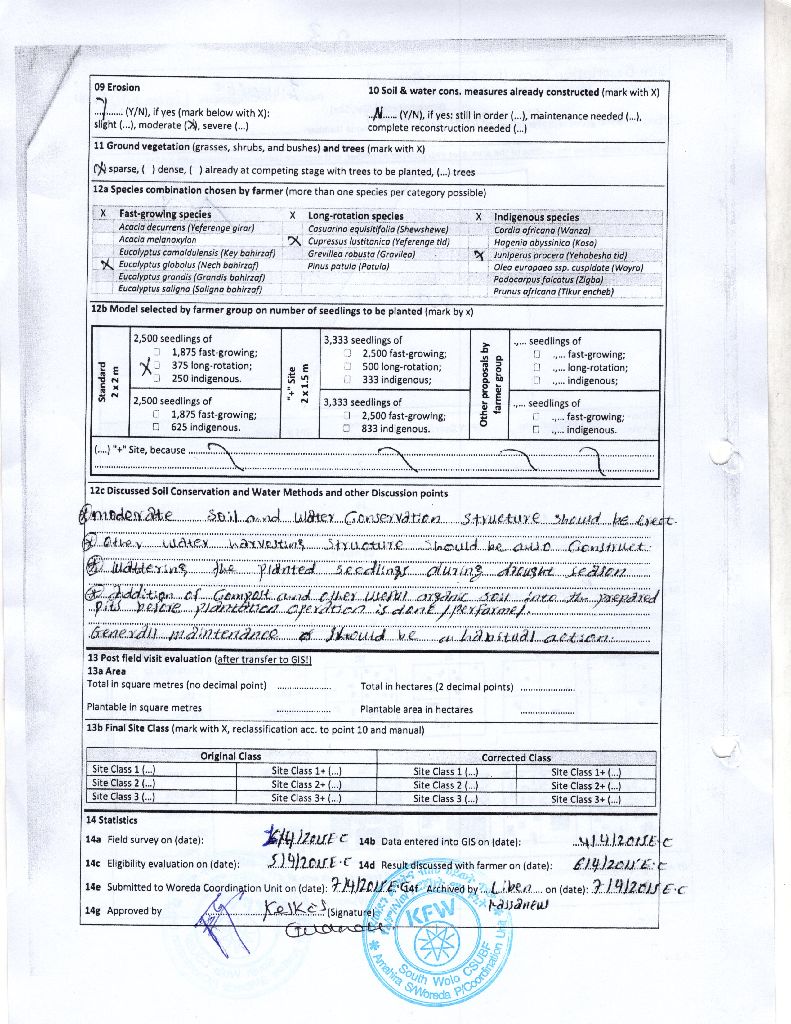 09 Erosion
10 Soil & water cons. measures already constructed (mark with X)
Y (Y/N), if yes (mark below with X):
N (Y/N), if yes: still in order (...), maintenance needed (...),
slight (...), moderate (X), severe (...)
complete reconstruction needed (...)
11 Ground vegetation (grasses, shrubs, and bushes) and trees (mark with X)
(X) sparse, ( ) dense, ( ) already at competing stage with trees to be planted, (...) trees
12a Species combination chosen by farmer (more than one species per category possible)
X Fast-growing species X Long-rotation species X Indigenous species
Acacia decurrens (Yeferenge girar) Casuarina equisitifolia (Shewshewe) Cordia africana (Wanza)
Acacia melanoxylon X Cupressus lustitanica (Yeferenge tid) Hagenia abyssinica (Koso)
Eucalyptus camaldulensis (Key bahirzaf) Grevillea robusta (Gravilea) X Juniperus procera (Yehabesha tid)
X Eucalyptus globolus (Nech bahirzaf) Pinus patula (Patula) Olea europaea ssp. cuspidate (Wayra)
Eucalyptus grandis (Grandis bahirzaf) Podocarpus falcatus (Zigba)
Eucalyptus saligna (Saligna bahirzaf) Prunus africana (Tikur encheb)
12b Model selected by farmer group on number of seedlings to be planted (mark by x)
Standard
2 x 2 m
2,500 seedlings of
1,875 fast-growing;
X 375 long-rotation;
250 indigenous.
2,500 seedlings of
1,875 fast-growing;
625 indigenous.
"+" Site
2 x 1.5 m
3,333 seedlings of
2,500 fast-growing;
500 long-rotation;
333 indigenous;
3,333 seedlings of
2,500 fast-growing;
833 indigenous.
Other proposals by
farmer group
.,... seedlings of
.,... fast-growing;
.,... long-rotation;
.,... indigenous;
.,... seedlings of
.,... fast-growing;
.,... indigenous.
(....) "+" Site, because
12c Discussed Soil Conservation and Water Methods and other Discussion points
moderate soil and water conservation structure should be erect
other water harvesting structure should be also construct
Wattering the planted seedlings during drought season
Addition of compost and other useful organic soil into the prepared
pits before plantation operation is done / performed.
Generally maintenance should be a habitual action.
13 Post field visit evaluation (after transfer to GIS!)
13a Area
Total in square metres (no decimal point) .................. Total in hectares (2 decimal points) ..................
Plantable in square metres .................. Plantable area in hectares ..................
13b Final Site Class (mark with X, reclassification acc. to point 10 and manual)
Original Class Corrected Class
Site Class 1 (...) Site Class 1+ (...) Site Class 1 (...) Site Class 1+ (...)
Site Class 2 (...) Site Class 2+ (...) Site Class 2 (...) Site Class 2+ (...)
Site Class 3 (...) Site Class 3+ (...) Site Class 3 (...) Site Class 3+ (...)
14 Statistics
14a Field survey on (date): 14b Data entered into GIS on (date):
14c Eligibility evaluation on (date): 14d Result discussed with farmer on (date):
14e Submitted to Woreda Coordination Unit on (date): 14f Archived by Liben on (date):
14g Approved by (Signature)
KFW
South Wolo CSUBF
Amahra S/Woreda P/Coordination Unit